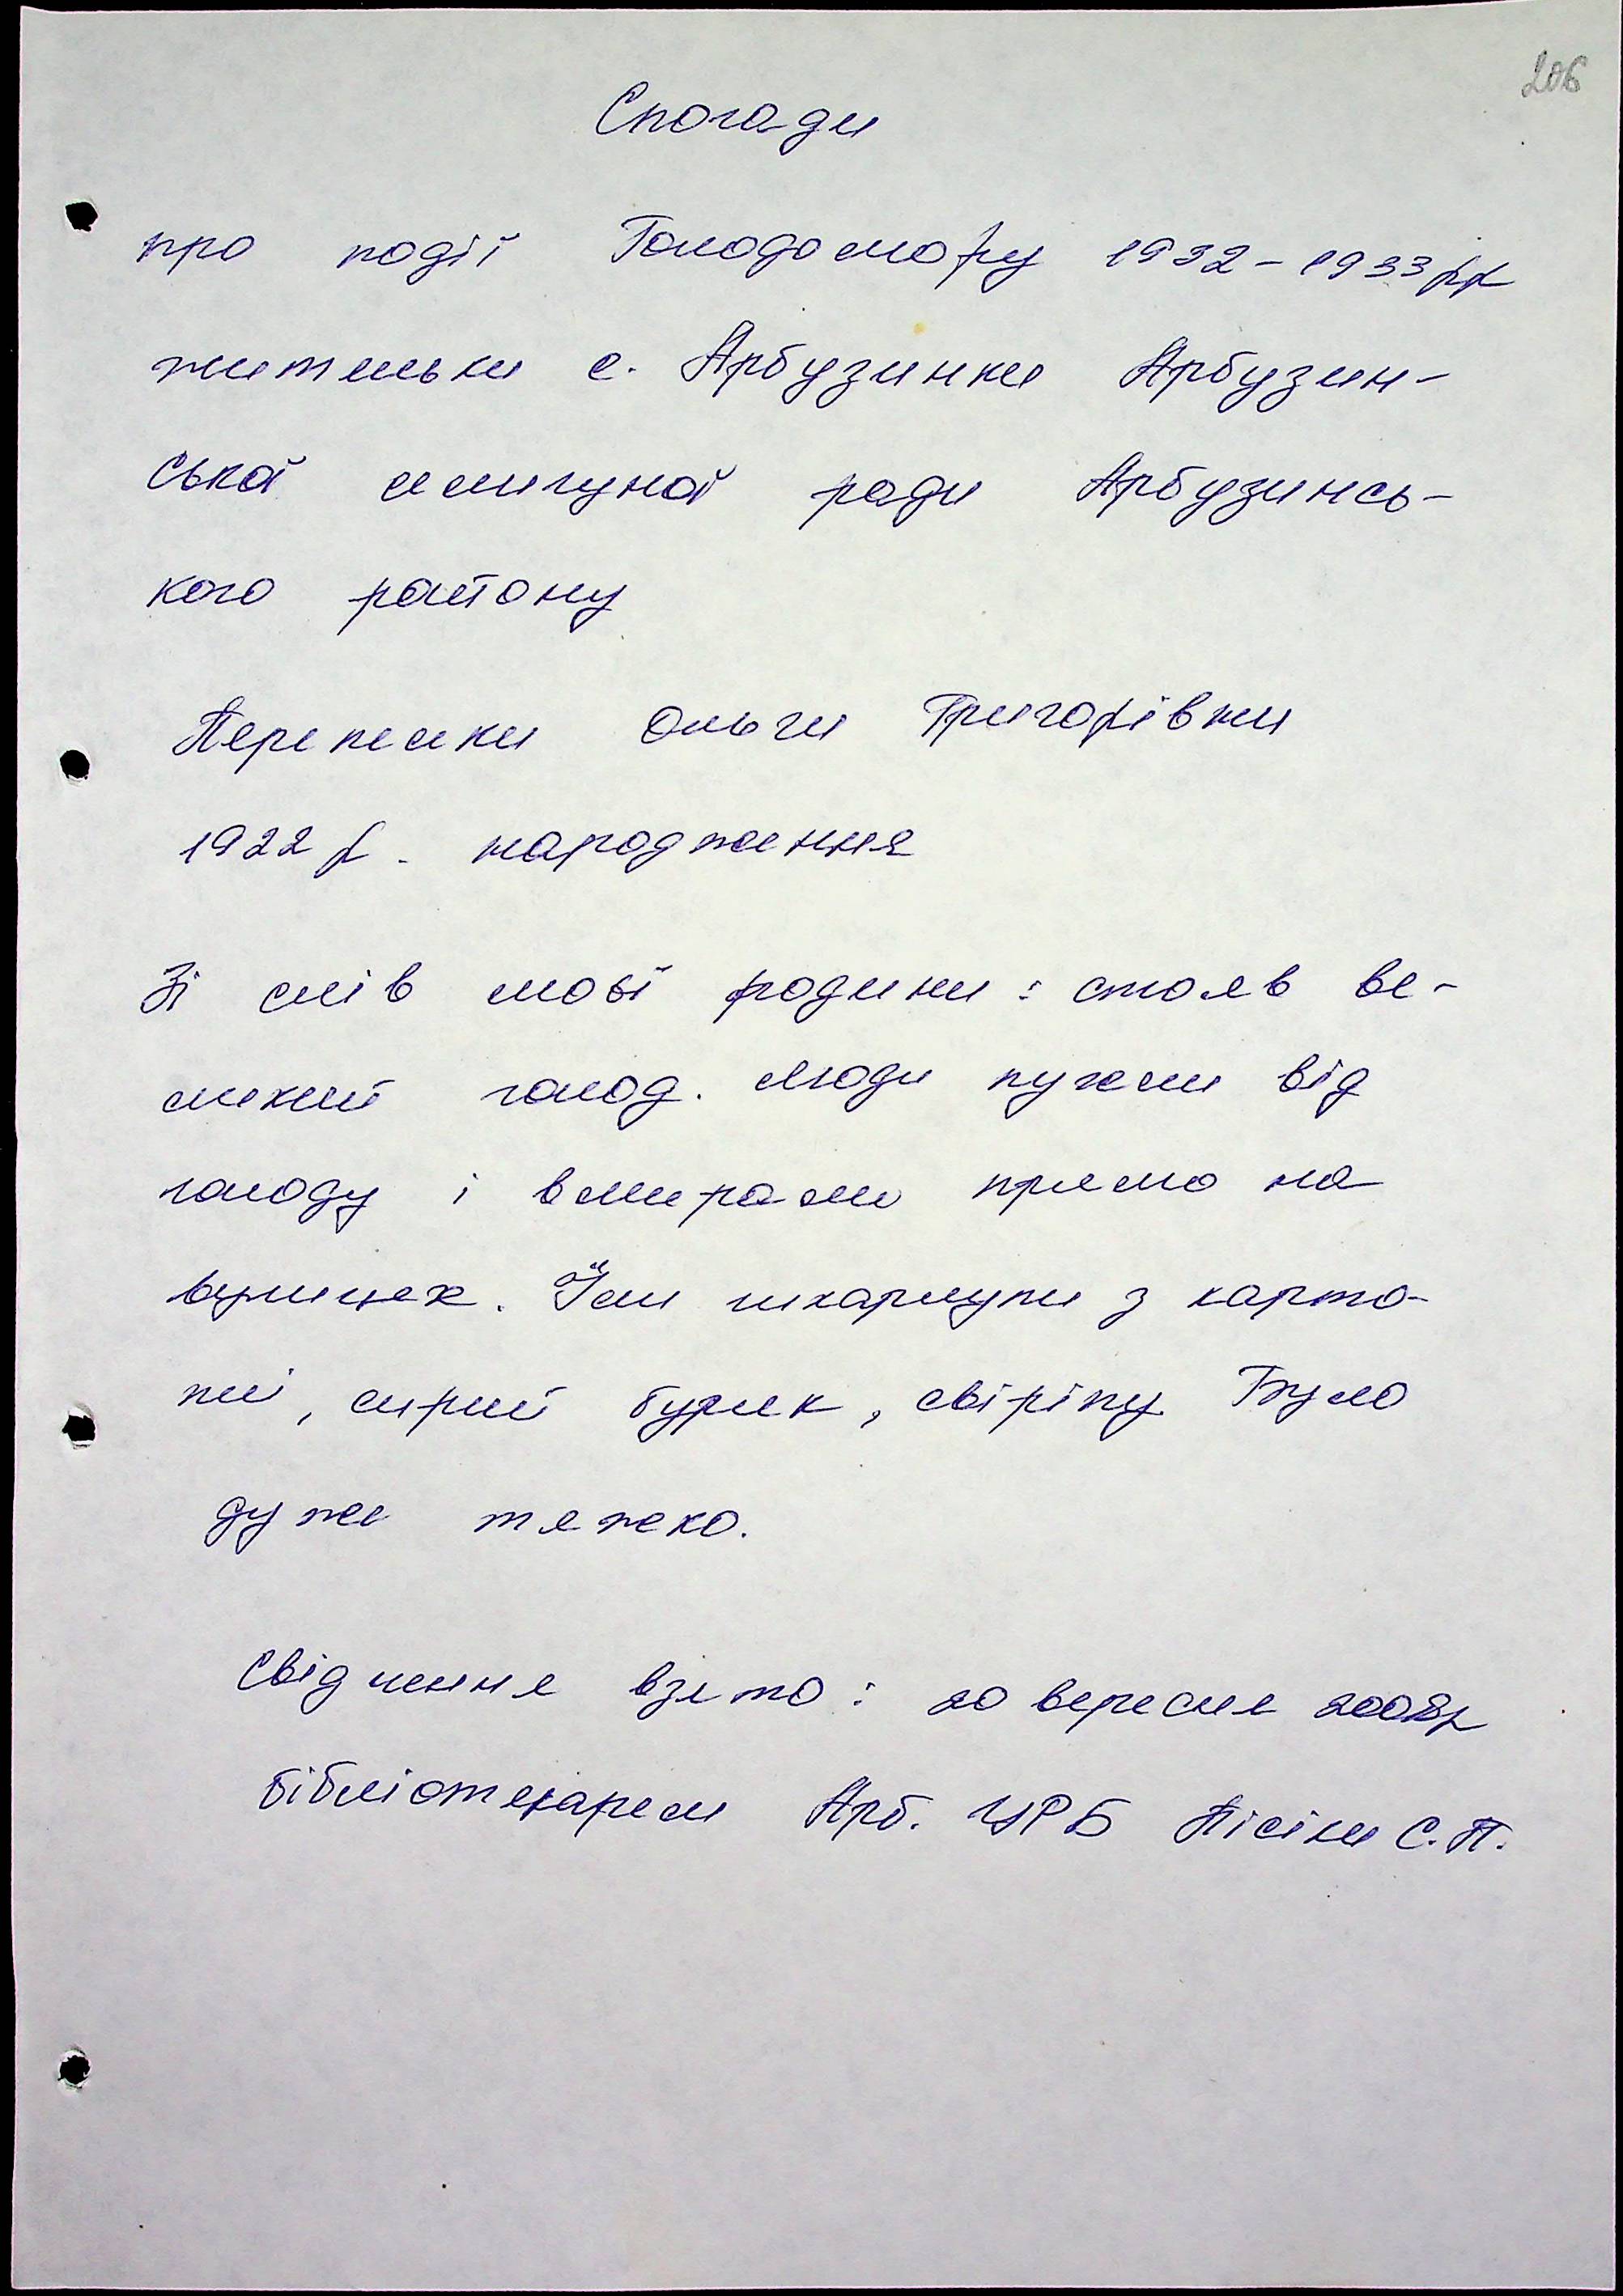 206
Спогади
про події Голодомору 1932-1933 рр
жительки с. Арбузинки Арбузин-
ської селищної ради Арбузинсь-
кого району
Ольги Григорівни
1922 р. народження
Зі слів моєї родини: стояв ве-
ликий голод. Люди пухли від
голоду і вмирали прямо на
вулицях. Їли шкарлупи з карто-
плі, сирий буряк, свіріпу. Було
дуже тяжко.
Свідчення взято: 20 вересня 2008р
бібліотекарем Арб. ЦРБ С.П.